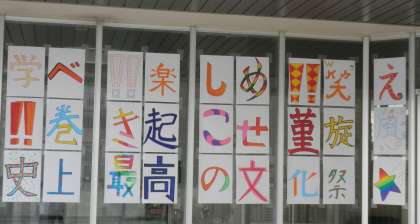 学べ!!楽しめ!!笑え
!!巻き起こせ菫旋風
史上最高の文化祭★